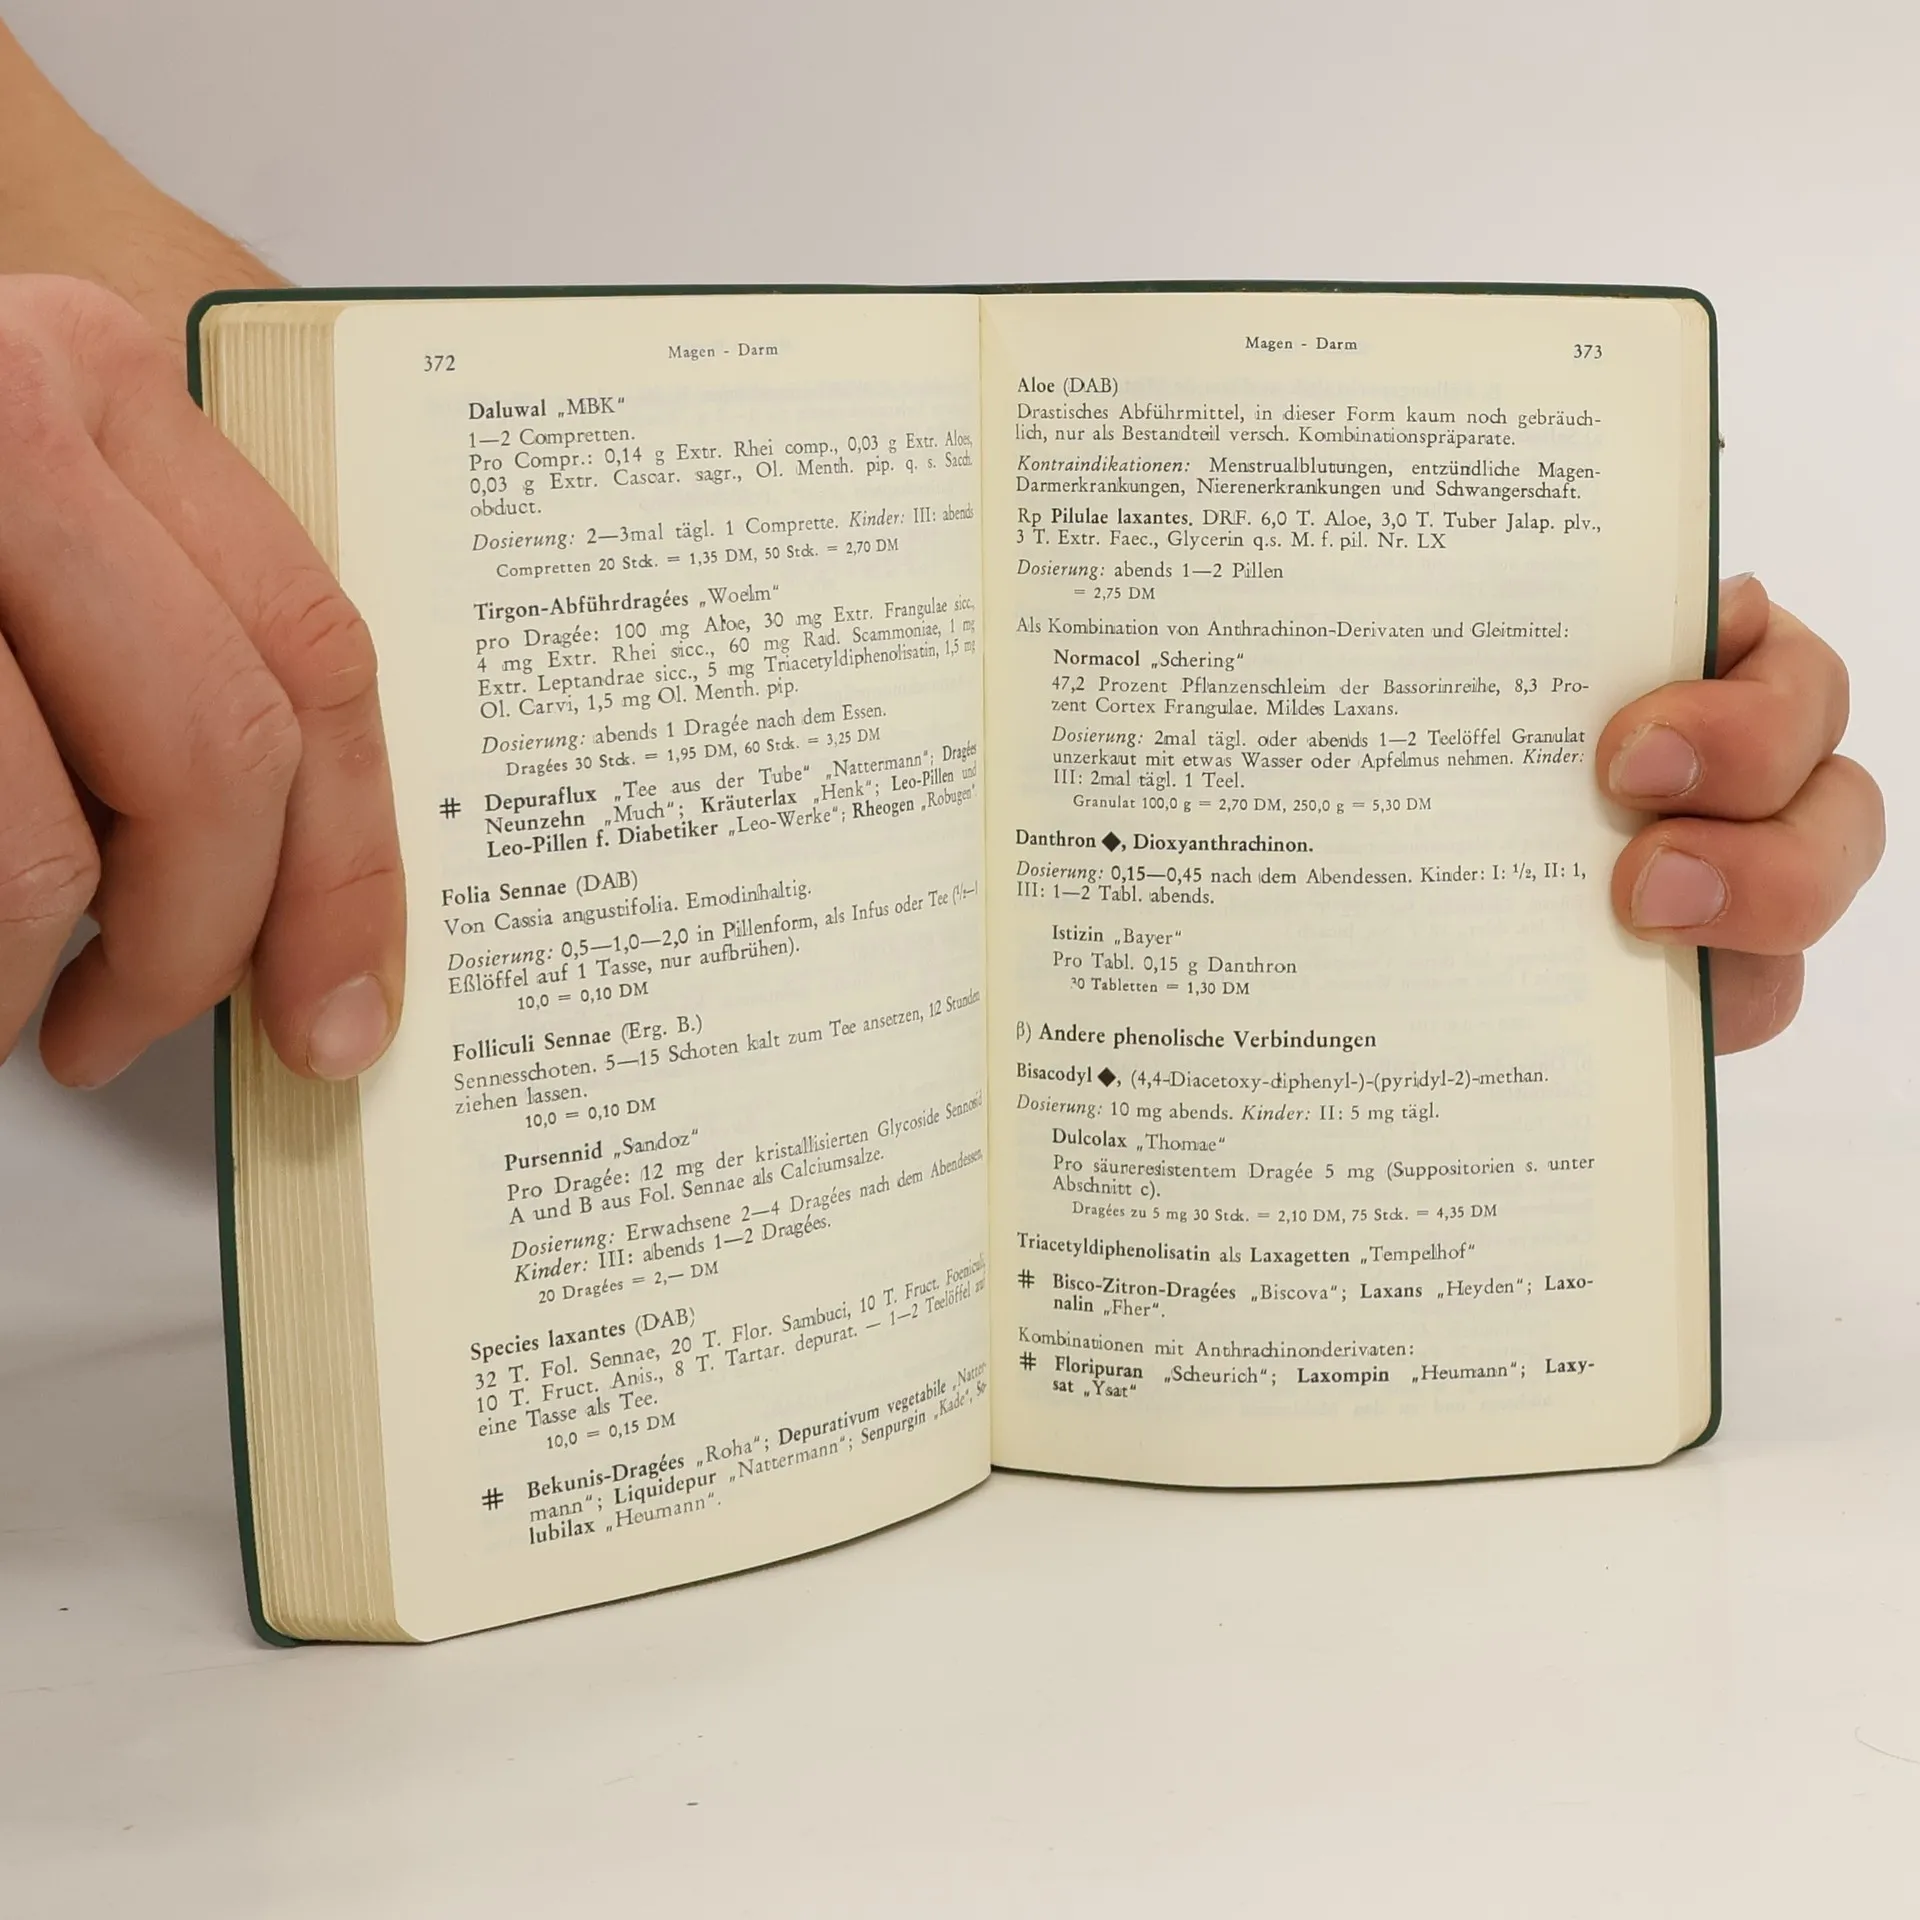 372
Magen - Darm
Daluwal „MBK“
1—2 Compretten.
Pro Compr.: 0,14 g Extr. Rhei comp., 0,03 g Extr. Aloes,
0,03 g Extr. Cascar. sagr., Ol. Menth. pip. q. s. Sacch.
obduct.
Dosierung: 2—3mal tägl. 1 Comprette. Kinder: III: abends
Compretten 20 Stck. = 1,35 DM, 50 Stck. = 2,70 DM
Tirgon-Abführdragées „Woelm“
pro Dragée: 100 mg Aloe, 30 mg Extr. Frangulae sicc.,
4 mg Extr. Rhei sicc., 60 mg Rad. Scammoniae, 1 mg
Extr. Leptandrae sicc., 5 mg Triacetyldiphenolisatin, 1,5 mg
Ol. Carvi, 1,5 mg Ol. Menth. pip.
Dosierung: abends 1 Dragée nach dem Essen.
Dragées 30 Stck. = 1,95 DM, 60 Stck. = 3,25 DM
# Depuraflux „Tee aus der Tube“ „Nattermann“; Dragées
Neunzehn „Much“; Kräuterlax „Henk“; Leo-Pillen und
Leo-Pillen f. Diabetiker „Leo-Werke“; Rheogen „Robugen“.
Folia Sennae (DAB)
Von Cassia angustifolia. Emodinhaltig.
Dosierung: 0,5—1,0—2,0 in Pillenform, als Infus oder Tee (½—1
Eßlöffel auf 1 Tasse, nur aufbrühen).
10,0 = 0,10 DM
Folliculi Sennae (Erg. B.)
Sennesschoten. 5—15 Schoten kalt zum Tee ansetzen, 12 Stunden
ziehen lassen.
10,0 = 0,10 DM
Pursennid „Sandoz“
Pro Dragée: 12 mg der kristallisierten Glycoside Sennosid
A und B aus Fol. Sennae als Calciumsalze.
Dosierung: Erwachsene 2—4 Dragées nach dem Abendessen,
Kinder: III: abends 1—2 Dragées.
20 Dragées = 2,— DM
Species laxantes (DAB)
32 T. Fol. Sennae, 20 T. Flor. Sambuci, 10 T. Fruct. Foeniculi,
10 T. Fruct. Anis., 8 T. Tartar. depurat. — 1—2 Teelöffel auf
eine Tasse als Tee.
10,0 = 0,15 DM
# Bekunis-Dragées „Roha“; Depurativum vegetabile „Natter-
mann“; Liquidepur „Nattermann“; Senpurgin „Kade“, So-
lubilax „Heumann“.
Magen - Darm
373
Aloe (DAB)
Drastisches Abführmittel, in dieser Form kaum noch gebräuch-
lich, nur als Bestandteil versch. Kombinationspräparate.
Kontraindikationen: Menstrualblutungen, entzündliche Magen-
Darmerkrankungen, Nierenerkrankungen und Schwangerschaft.
Rp Pilulae laxantes. DRF. 6,0 T. Aloe, 3,0 T. Tuber Jalap. plv.,
3 T. Extr. Faec., Glycerin q.s. M. f. pil. Nr. LX
Dosierung: abends 1—2 Pillen
= 2,75 DM
Als Kombination von Anthrachinon-Derivaten und Gleitmittel:
Normacol „Schering“
47,2 Prozent Pflanzenschleim der Bassorinreihe, 8,3 Pro-
zent Cortex Frangulae. Mildes Laxans.
Dosierung: 2mal tägl. oder abends 1—2 Teelöffel Granulat
unzerkaut mit etwas Wasser oder Apfelmus nehmen. Kinder:
III: 2mal tägl. 1 Teel.
Granulat 100,0 g = 2,70 DM, 250,0 g = 5,30 DM
Danthron ◆, Dioxyanthrachinon.
Dosierung: 0,15—0,45 nach dem Abendessen. Kinder: I: ½, II: 1,
III: 1—2 Tabl. abends.
Istizin „Bayer“
Pro Tabl. 0,15 g Danthron
30 Tabletten = 1,30 DM
β) Andere phenolische Verbindungen
Bisacodyl ◆, (4,4-Diacetoxy-diphenyl-)-(pyridyl-2)-methan.
Dosierung: 10 mg abends. Kinder: II: 5 mg tägl.
Dulcolax „Thomae“
Pro säureresistentem Dragée 5 mg (Suppositorien s. unter
Abschnitt c).
Dragées zu 5 mg 30 Stck. = 2,10 DM, 75 Stck. = 4,35 DM
Triacetyldiphenolisatin als Laxagetten „Tempelhof“
# Bisco-Zitron-Dragées „Biscova“; Laxans „Heyden“; Laxo-
nalin „Fher“.
Kombinationen mit Anthrachinonderivaten:
# Floripuran „Scheurich“; Laxompin „Heumann“; Laxy-
sat „Ysat“